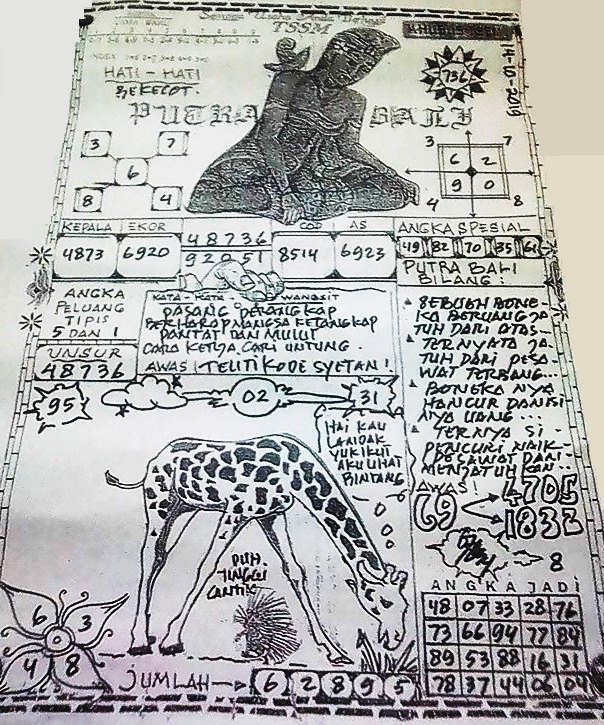 Semoga Usaha Anda Berhasil
TSSM
14-10-2019
736
HATI - HATI
BEKECOT.
PUTRA BALI
3 7
6
8 4
3 7
6 2
9 0
4 8
KEPALA EKOR
4873 6920
48736
92051
COP AS
8514 6923
ANGKA SPESIAL
49 82 70 35 61
PUTRA BALI
BILANG:
ANGKA
PELUANG
TIPIS
5 DAN 1
UNSUR
48736
KATA - KATA WANGSIT
PASANG PERANGKAP
BERHARAP MANGSA KETANGKAP
PANTAT DAN MULUT
CARA KERJA CARI UNTUNG.
AWAS! TELITI KODE SYETAN!
SEBUAH BONE-
KA BERUANG JA
TUH DARI ATAS-
TERNYATA JA-
TUH DARI PESA-
WAT TERBANG...
BONEKA NYA
HANCUR DAN ISI
NYA UANG...
TERNYA SI-
PENCURI NAIK-
PESAWAT DAN-
MENJATUH KAN..
95 02 31
HAI KAU
LANDAK
YUK IKUT
AKU LIHAT
BINTANG
AWAS!
69
4705
1832
8
DUH.
TINGGI
CANTIK
6 3
0
4 8
JUMLAH
6 2 8 9 5
ANGKA JADI
48 07 33 28 76
73 66 94 77 84
89 53 88 16 31
78 37 44 06 04